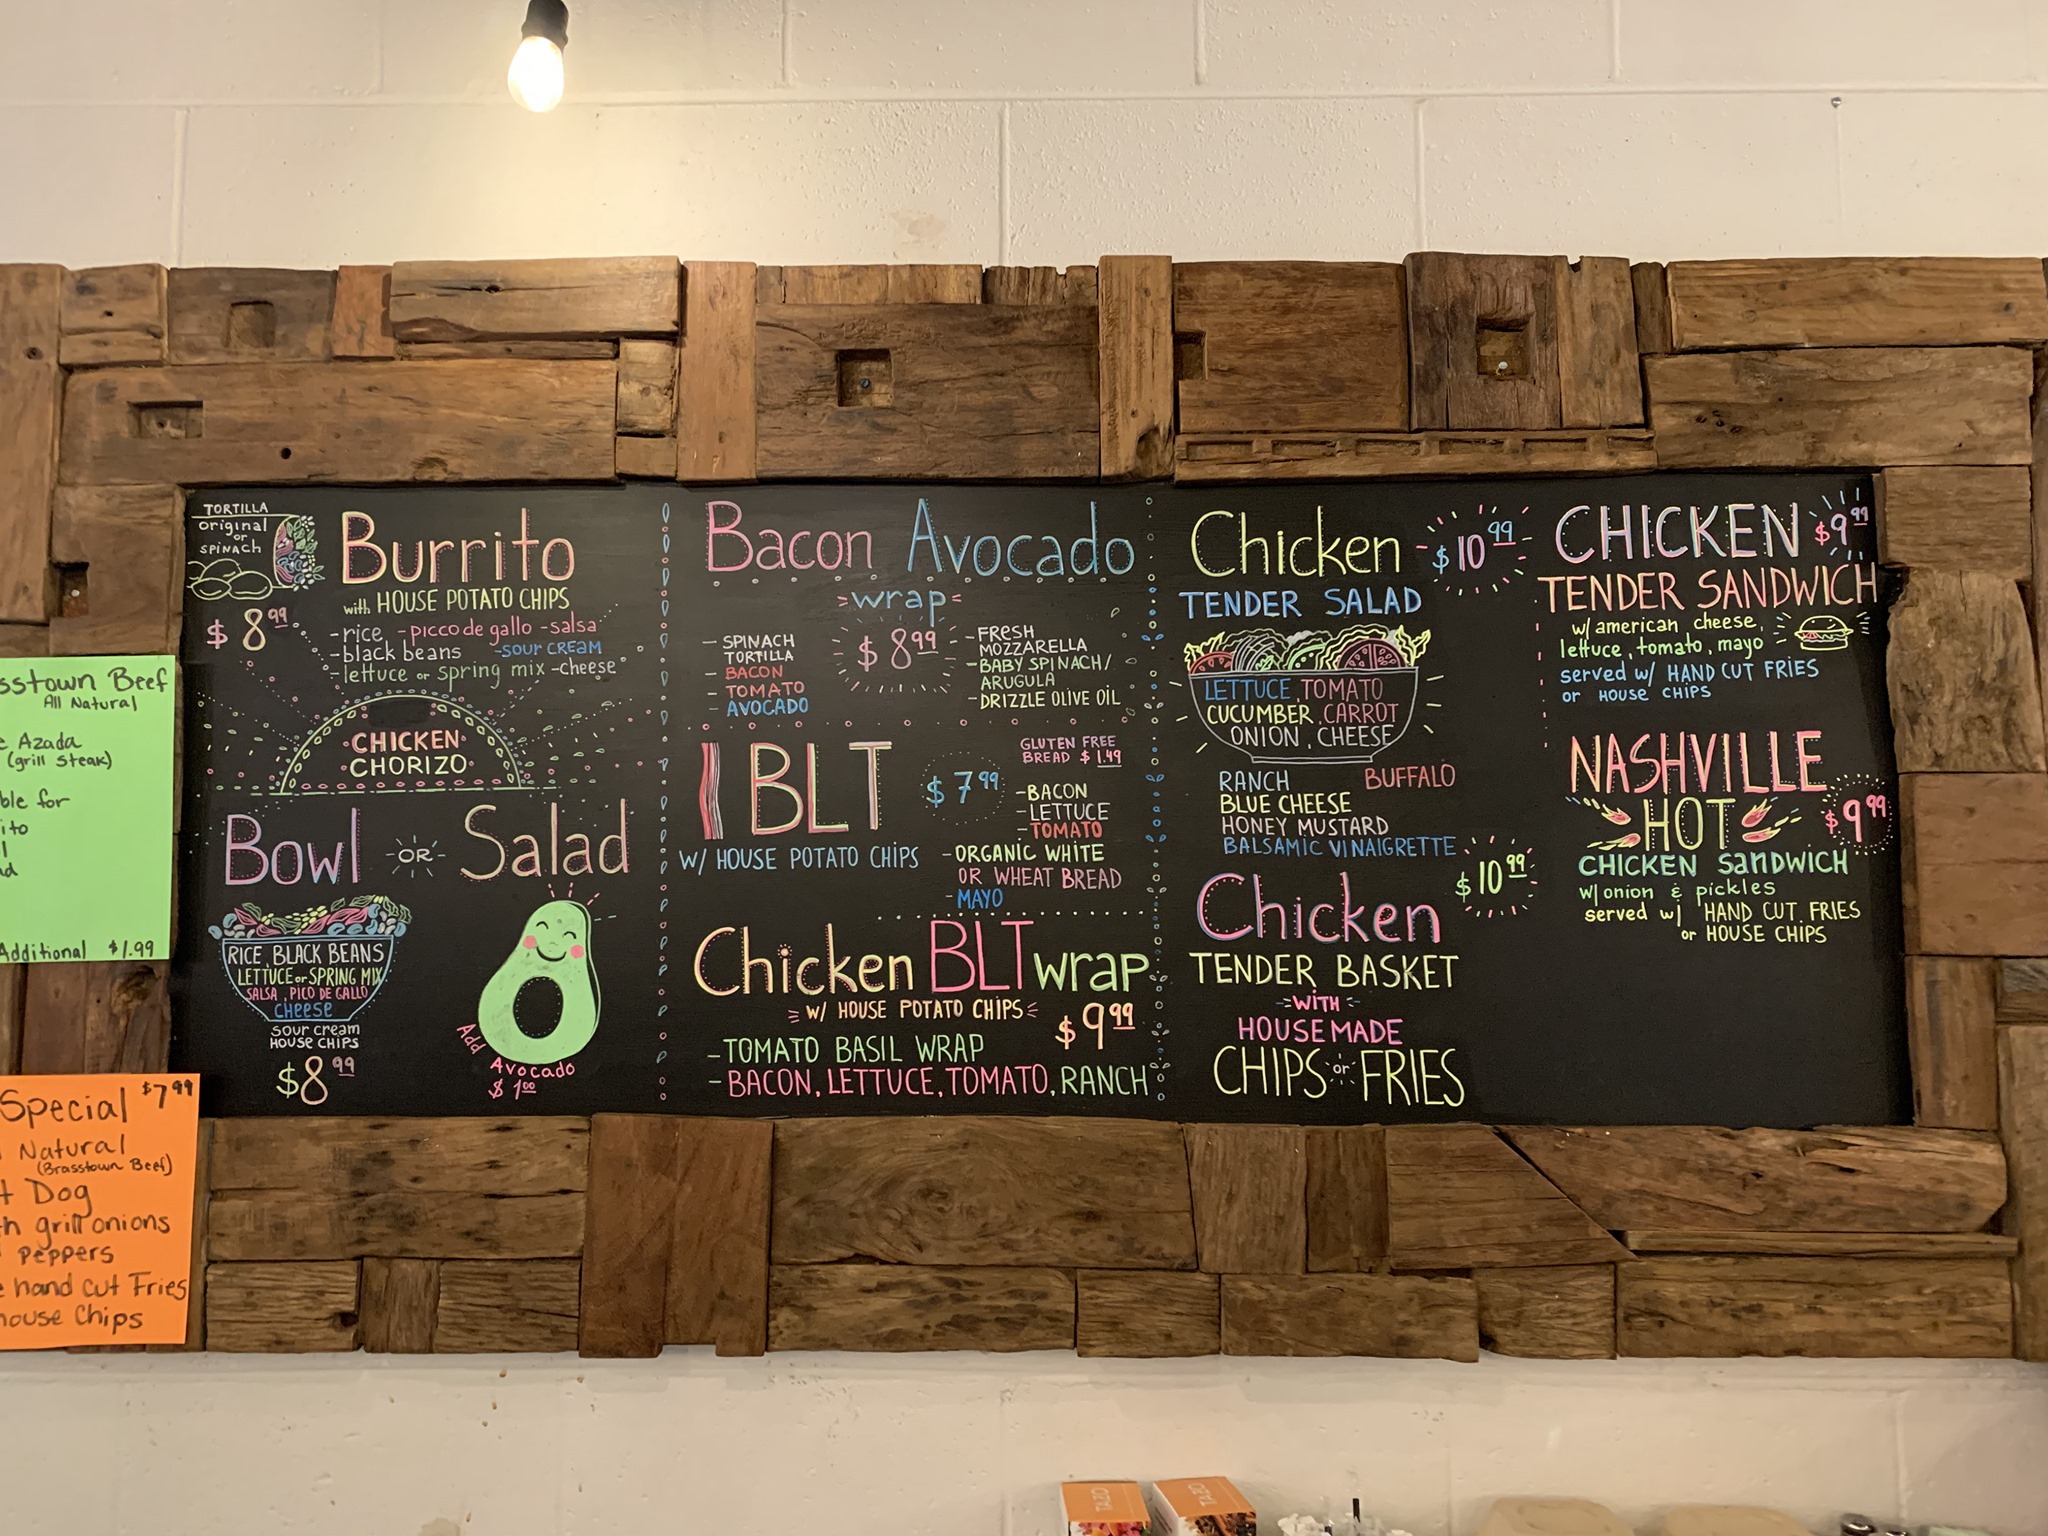 TORTILLA
original
or
SPINACH
$8.99
Burrito
with HOUSE POTATO CHIPS
-rice -picco de gallo -salsa
-black beans -SOUR CREAM
-lettuce or spring mix -cheese
CHICKEN
CHORIZO
Bowl -OR- Salad
RICE, BLACK BEANS
LETTUCE or SPRING MIX
SALSA, PICO DE GALLO
cheese
SOUR CREAM
HOUSE CHIPS
$8.99
Add
Avocado
$1.00
Bacon Avocado
wrap
$8.99
- SPINACH
TORTILLA
- BACON
- TOMATO
- AVOCADO
-FRESH
MOZZARELLA
-BABY SPINACH/
ARUGULA
-DRIZZLE OLIVE OIL
BLT
$7.99
GLUTEN FREE
BREAD $1.49
W/ HOUSE POTATO CHIPS
-BACON
- LETTUCE
- TOMATO
-ORGANIC WHITE
OR WHEAT BREAD
-MAYO
Chicken BLT wrap
W/ HOUSE POTATO CHIPS
$9.99
-TOMATO BASIL WRAP
-BACON, LETTUCE, TOMATO, RANCH
Chicken
$10.99
TENDER SALAD
LETTUCE, TOMATO
CUCUMBER, CARROT
ONION, CHEESE
RANCH BUFFALO
BLUE CHEESE
HONEY MUSTARD
BALSAMIC VINAIGRETTE
$10.99
Chicken
TENDER BASKET
-WITH-
HOUSEMADE
CHIPS or FRIES
CHICKEN $9.99
TENDER SANDWICH
w/american cheese,
lettuce, tomato, mayo
served w/ HAND CUT FRIES
or HOUSE CHIPS
NASHVILLE
HOT
$9.99
CHICKEN SANDWICH
w/onion & pickles
served w/ HAND CUT FRIES
or HOUSE CHIPS
Beef
All Natural
Azada
(grill steak)
for
Additional $1.99
Special $7.99
Natural
(Brasstown Beef)
Dog
grill onions
peppers
hand cut Fries
Chips
TAZO
TAZO